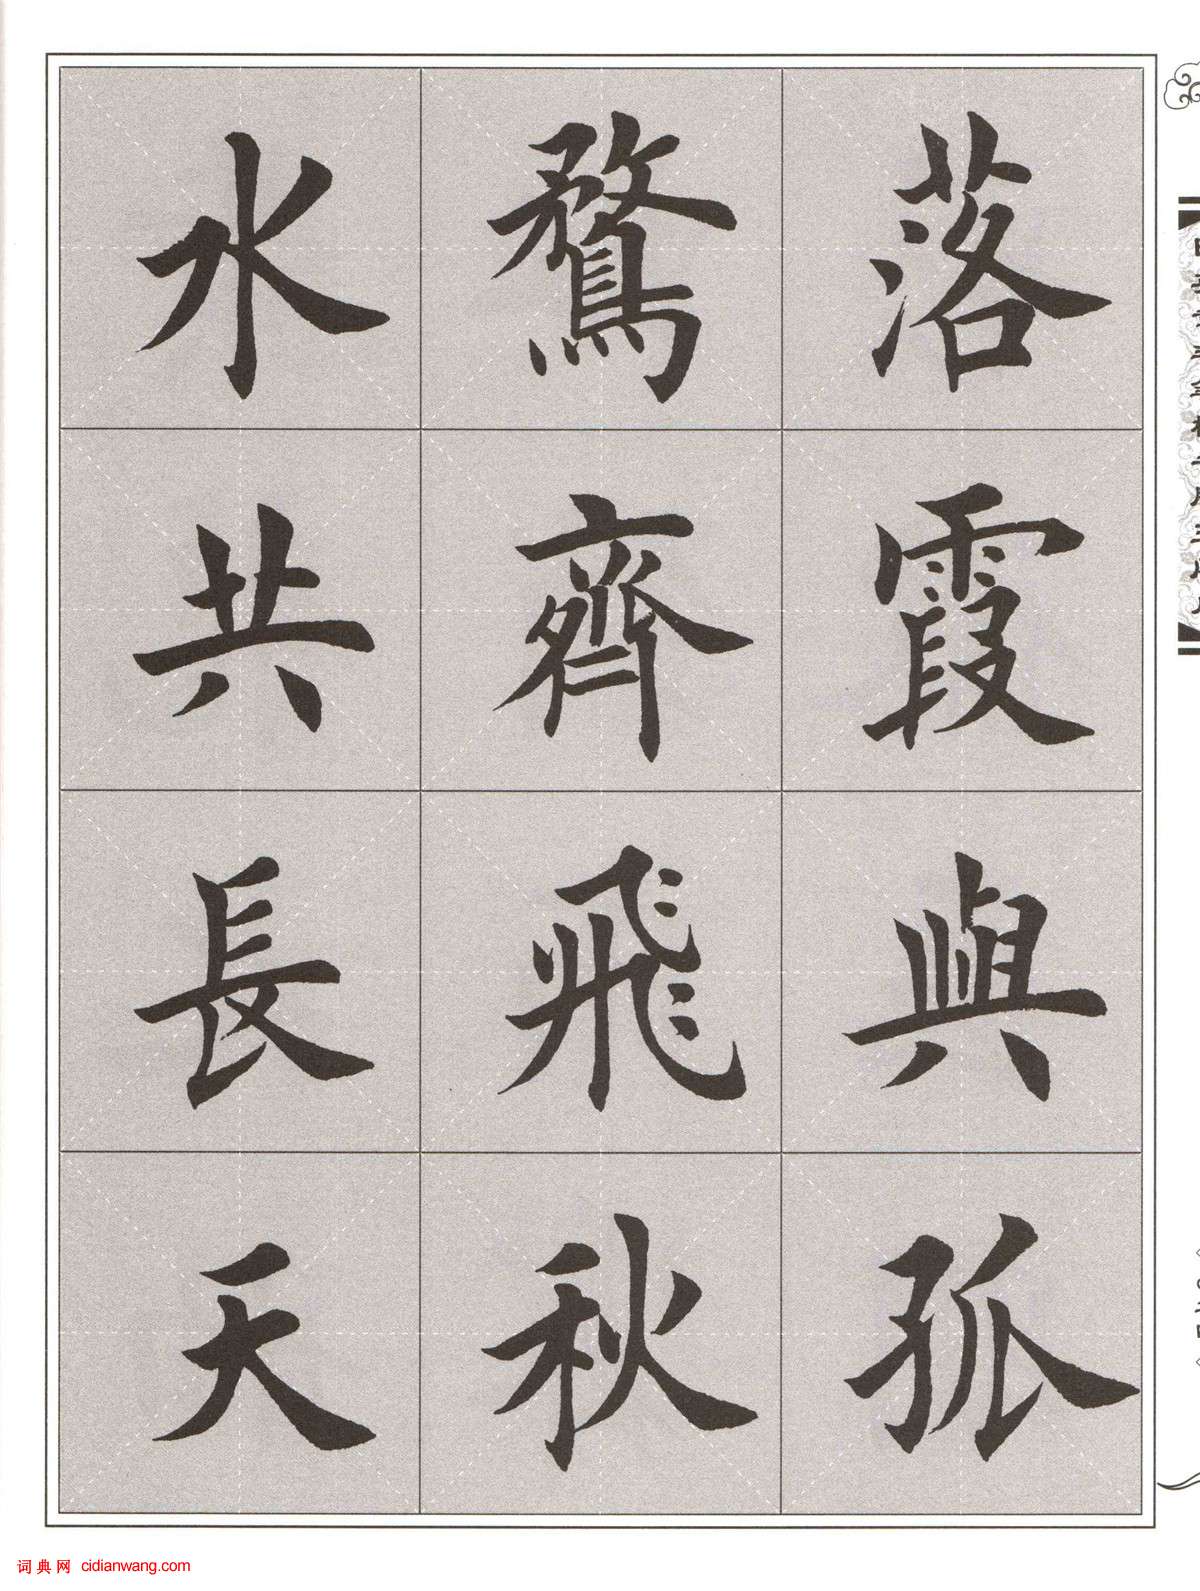 落霞與孤
鶩齊飛秋
水共長天
词典网 cidianwang.com